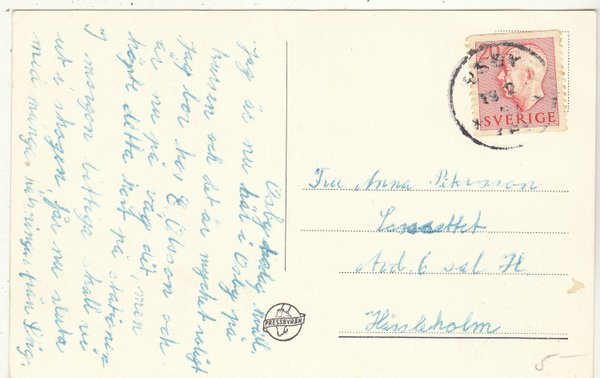 Osby
Jag är nu här i Osby på
kursen och det är mycket roligt
Jag bor hos E. Olsson och
är nu på väg dit, men
köpte detta kort på stationen
I morgon bittiga skall vi
ut i skogen, får nu sluta
med många från Dig.
20
SVERIGE
Fru Anna Petersson
Lasarettet
Avd. 6 sal H.
Hässleholm
PRESSBYRÅN
5-